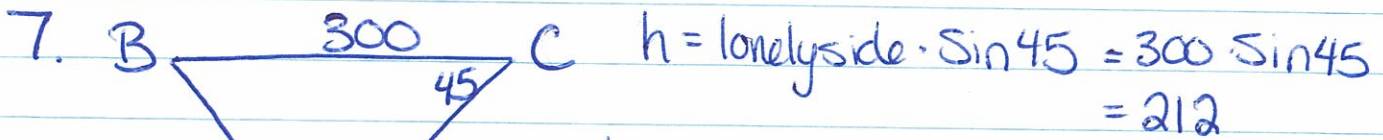 7. B 300 C h = lonelyside · Sin45 = 300 · Sin45
45 = 212